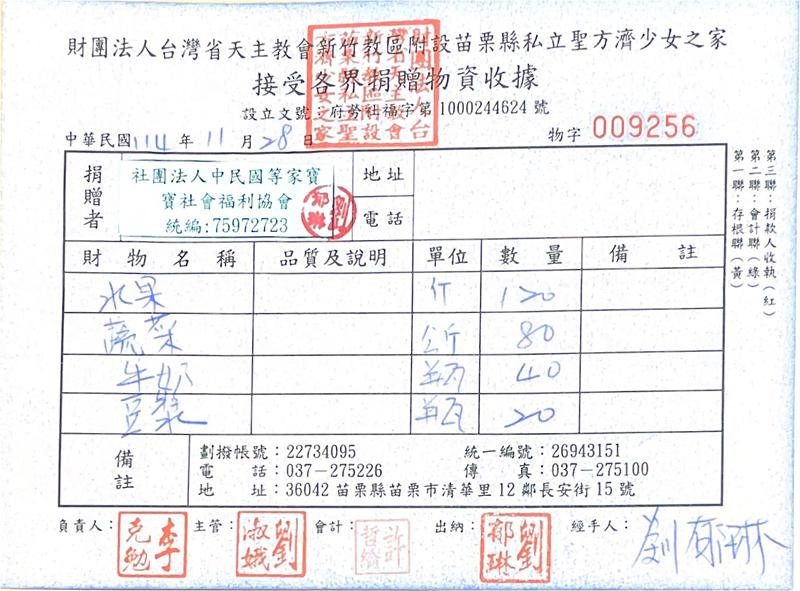 財團法人台灣省天主教會新竹教區附設苗栗縣私立聖方濟少女之家
接受各界捐贈物資收據
設立文號：府勞社福字第1000244624號
中華民國 114 年 11 月 28 日
物字 009256
捐贈者
社團法人中民國等家寶
寶社會福利協會
統編:75972723
地址
電話
財物名稱 品質及說明 單位 數量 備註
水果 斤 120
蔬菜 公斤 80
牛奶 瓶 40
豆漿 瓶 20
備註
劃撥帳號：22734095 統一編號：26943151
電話：037－275226 傳真：037－275100
地址：36042苗栗縣苗栗市清華里12鄰長安街15號
第一聯：存根聯(黃)
第二聯：會計聯(綠)
第三聯：捐款人收執(紅)
負責人： 李克勉 主管： 劉淑娥 會計： 出納： 劉郁琳 經手人： 劉郁琳